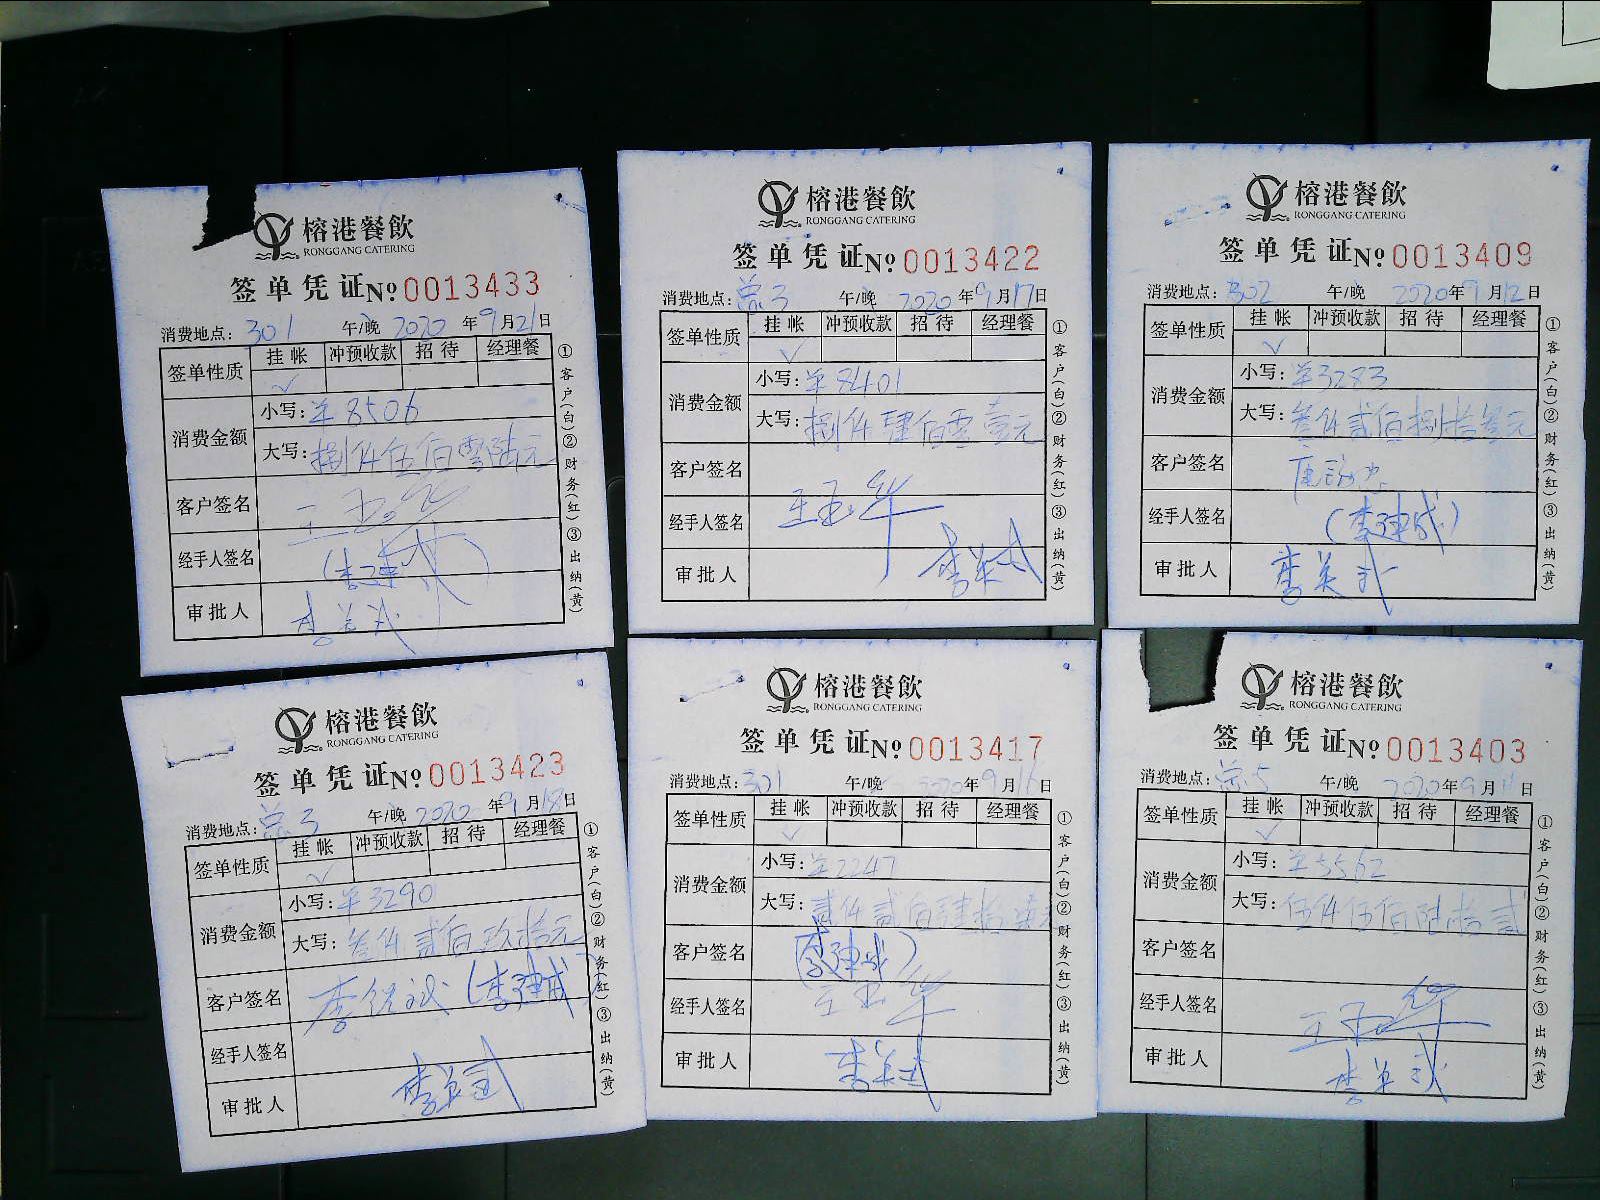 榕港餐飲
RONGGANG CATERING
签单凭证 № 0013433
消费地点: 301 午/晚 2020 年 9 月 21 日
签单性质 挂帐 冲预收款 招待 经理餐
✓
消费金额 小写: ¥8506
大写: 捌仟伍佰零陆元
客户签名
经手人签名 (李建成)
审批人
①客户(白)②财务(红)③出纳(黄)
榕港餐飲
RONGGANG CATERING
签单凭证 № 0013422
消费地点: 午/晚 2020 年 9 月 17 日
签单性质 挂帐 冲预收款 招待 经理餐
✓
消费金额 小写: ¥8401
大写: 捌仟肆佰零壹元
客户签名
经手人签名
审批人
①客户(白)②财务(红)③出纳(黄)
榕港餐飲
RONGGANG CATERING
签单凭证 № 0013409
消费地点: 302 午/晚 2020 年 9 月 12 日
签单性质 挂帐 冲预收款 招待 经理餐
✓
消费金额 小写: ¥3283
大写: 叁仟贰佰捌拾叁元
客户签名
经手人签名 (李建成)
审批人
①客户(白)②财务(红)③出纳(黄)
榕港餐飲
RONGGANG CATERING
签单凭证 № 0013423
消费地点: 午/晚 2020 年 9 月 18 日
签单性质 挂帐 冲预收款 招待 经理餐
✓
消费金额 小写: ¥3290
大写: 叁仟贰佰玖拾元
客户签名 (李建成)
经手人签名
审批人
①客户(白)②财务(红)③出纳(黄)
榕港餐飲
RONGGANG CATERING
签单凭证 № 0013417
消费地点: 301 午/晚 2020 年 9 月 16 日
签单性质 挂帐 冲预收款 招待 经理餐
✓
消费金额 小写: ¥2247
大写: 贰仟贰佰肆拾柒元
客户签名 (李建成)
经手人签名
审批人
①客户(白)②财务(红)③出纳(黄)
榕港餐飲
RONGGANG CATERING
签单凭证 № 0013403
消费地点: 午/晚 2020 年 9 月 11 日
签单性质 挂帐 冲预收款 招待 经理餐
✓
消费金额 小写: ¥5562
大写: 伍仟伍佰陆拾贰
客户签名
经手人签名
审批人
①客户(白)②财务(红)③出纳(黄)